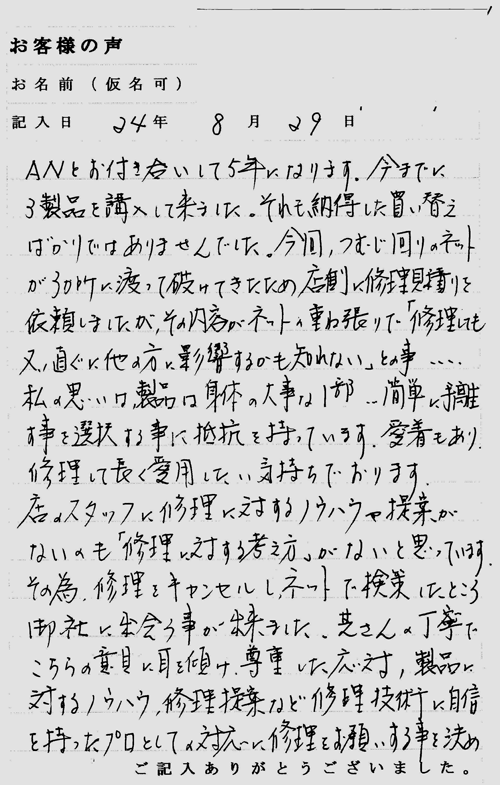 お客様の声
お名前(仮名可)
記入日 24年 8月 29日
ANとお付き合いして5年になります。今までに
3製品を購入して来ました。それも納得した買い替え
ばかりではありませんでした。今回、つむじ回りのネット
が3か所に渡って破けてきたため店側に修理見積りを
依頼しましたが、その内容がネットの重ね張りで「修理しても
又、直ぐに他の方に影響するかも知れない」との事‥‥
私の思いは、製品は身体の大事な1部‥簡単に手離
す事を選択する事に抵抗を持っています。愛着もあり、
修理して長く愛用したい気持ちでおります。
店のスタッフに修理に対するノウハウや提案が
ないのも「修理に対する考え方」がないと思っています。
その為、修理をキャンセルし、ネットで検索したところ
御社に出会う事が出来ました。皆さんの丁寧で
こちらの意見に耳を傾け、尊重した応対、製品に
対するノウハウ、修理提案など修理技術に自信
を持ったプロとしての対応に修理をお願いする事を決め
ご記入ありがとうございました。